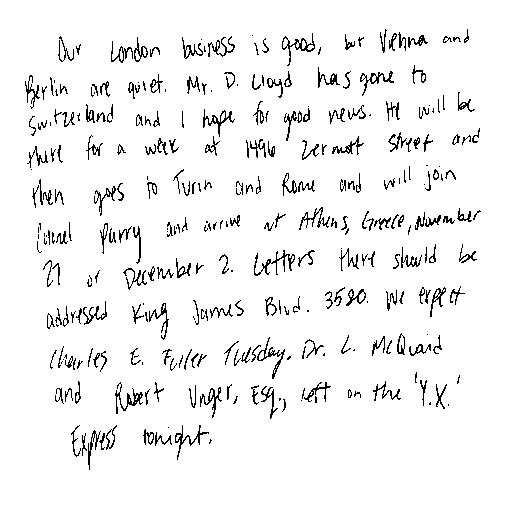 Our London business is good, but Vienna and
Berlin are quiet. Mr. D. Lloyd has gone to
Switzerland and I hope for good news. He will be
there for a week at 1496 Zermott Street and
then goes to Turin and Rome and will join
Colonel Parry and arrive at Athens, Greece, November
27 or December 2. Letters there should be
addressed King James Blvd. 3580. We expect
Charles E. Fuller Tuesday. Dr. L. McQuaid
and Robert Unger, Esq., left on the 'Y.X.'
Express tonight.